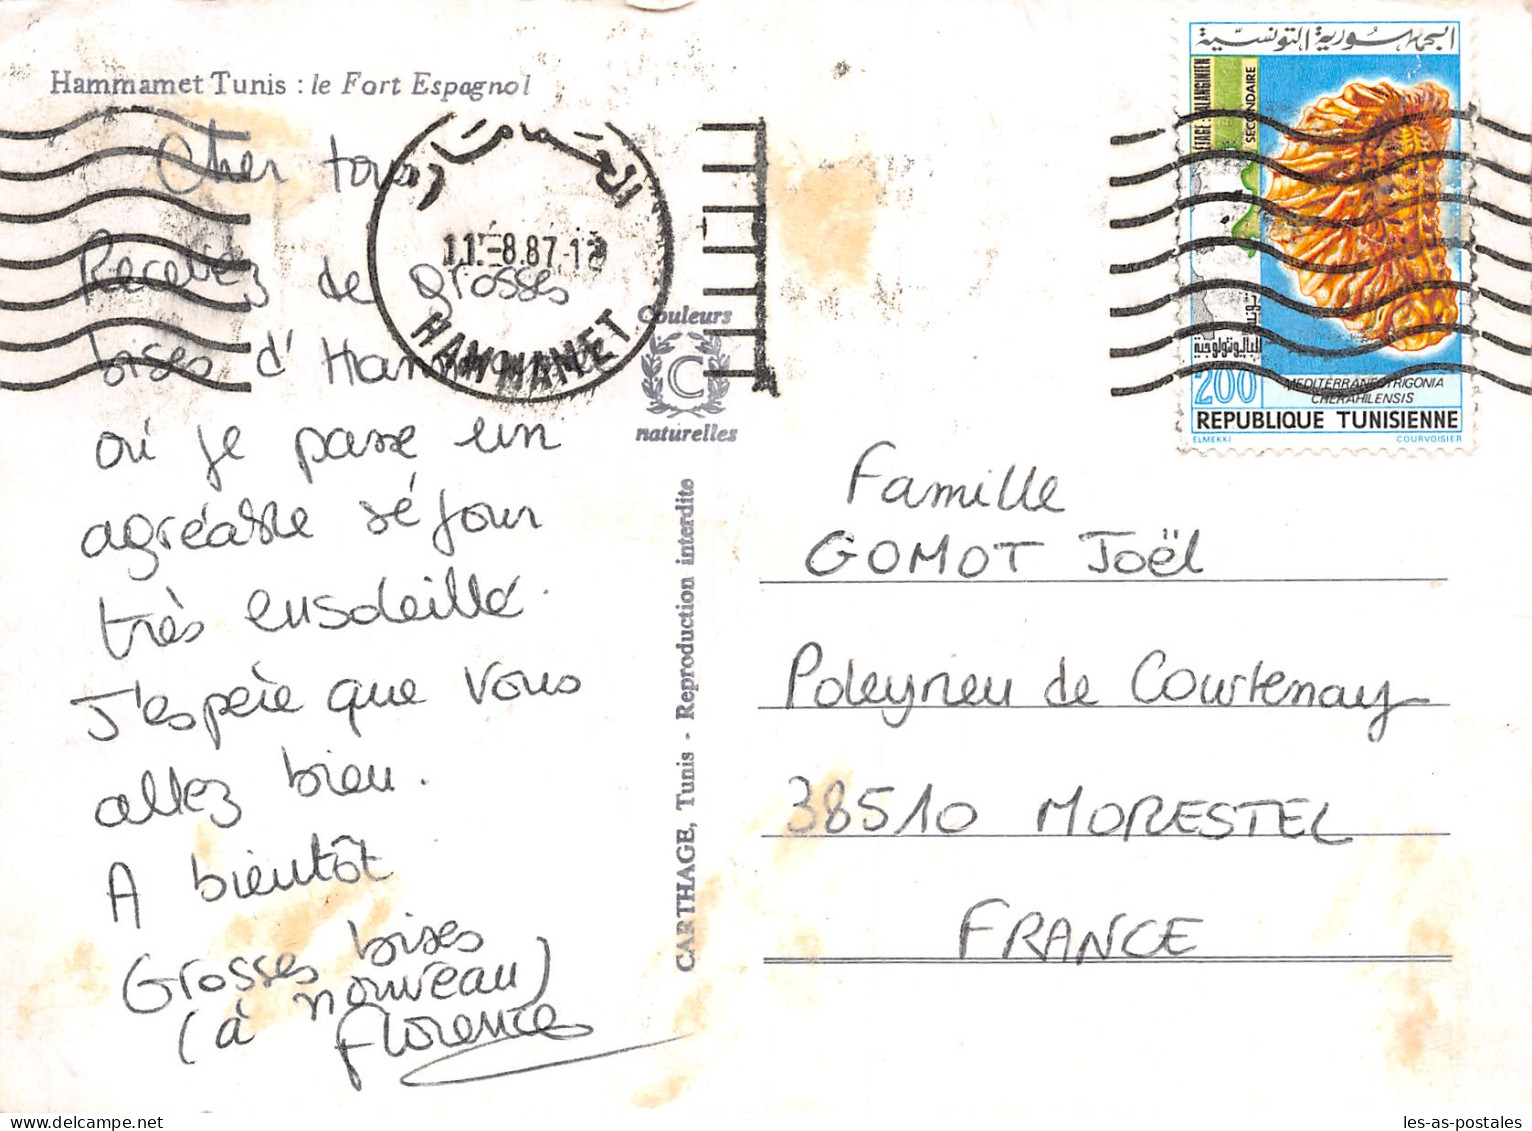 Hammamet Tunis : le Fort Espagnol
Cher tous
Recevez de grosses
bises d'Hammamet
où je passe un
agréable séjour
très ensoleillé.
J'espère que vous
allez bien.
A bientôt
Grosses bises
(à nouveau)
Florence
الحمامات
11.-8.87-18
HAMMAMET
Couleurs
C
naturelles
CARTHAGE, Tunis - Reproduction interdite
الجمهورية التونسية
SECONDAIRE
200
MEDITERRANEOTRIGONIA
CHERAHILENSIS
REPUBLIQUE TUNISIENNE
ELMEKKI COURVOISIER
Famille
GOMOT Joël
Poleyrieu de Courtenay
38510 MORESTEL
FRANCE
les-as-postales